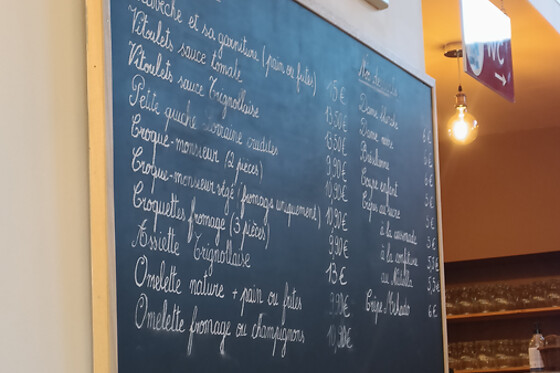 et sa garniture (pain ou frites) 15 €
Vitoulets sauce tomate 13,50 €
Vitoulets sauce Trignollaise 13,50 €
Petite quiche Lorraine crudités 9,90 €
Croque-monsieur (2 pièces) 10,90 €
Croque-monsieur végé (fromage uniquement) 10,90 €
Croquettes fromage (3 pièces) 9,90 €
Assiette Trignollaise 13 €
Omelette nature + pain ou frites 9,90 €
Omelette fromage ou champignons 10,90 €
Nos
Dame blanche 6 €
Dame noire €
Brésilienne €
Coupe enfant €
Crêpes au sucre €
à la cassonade €
à la confiture
au Nutella
Crêpe Mikado 6 €
WC